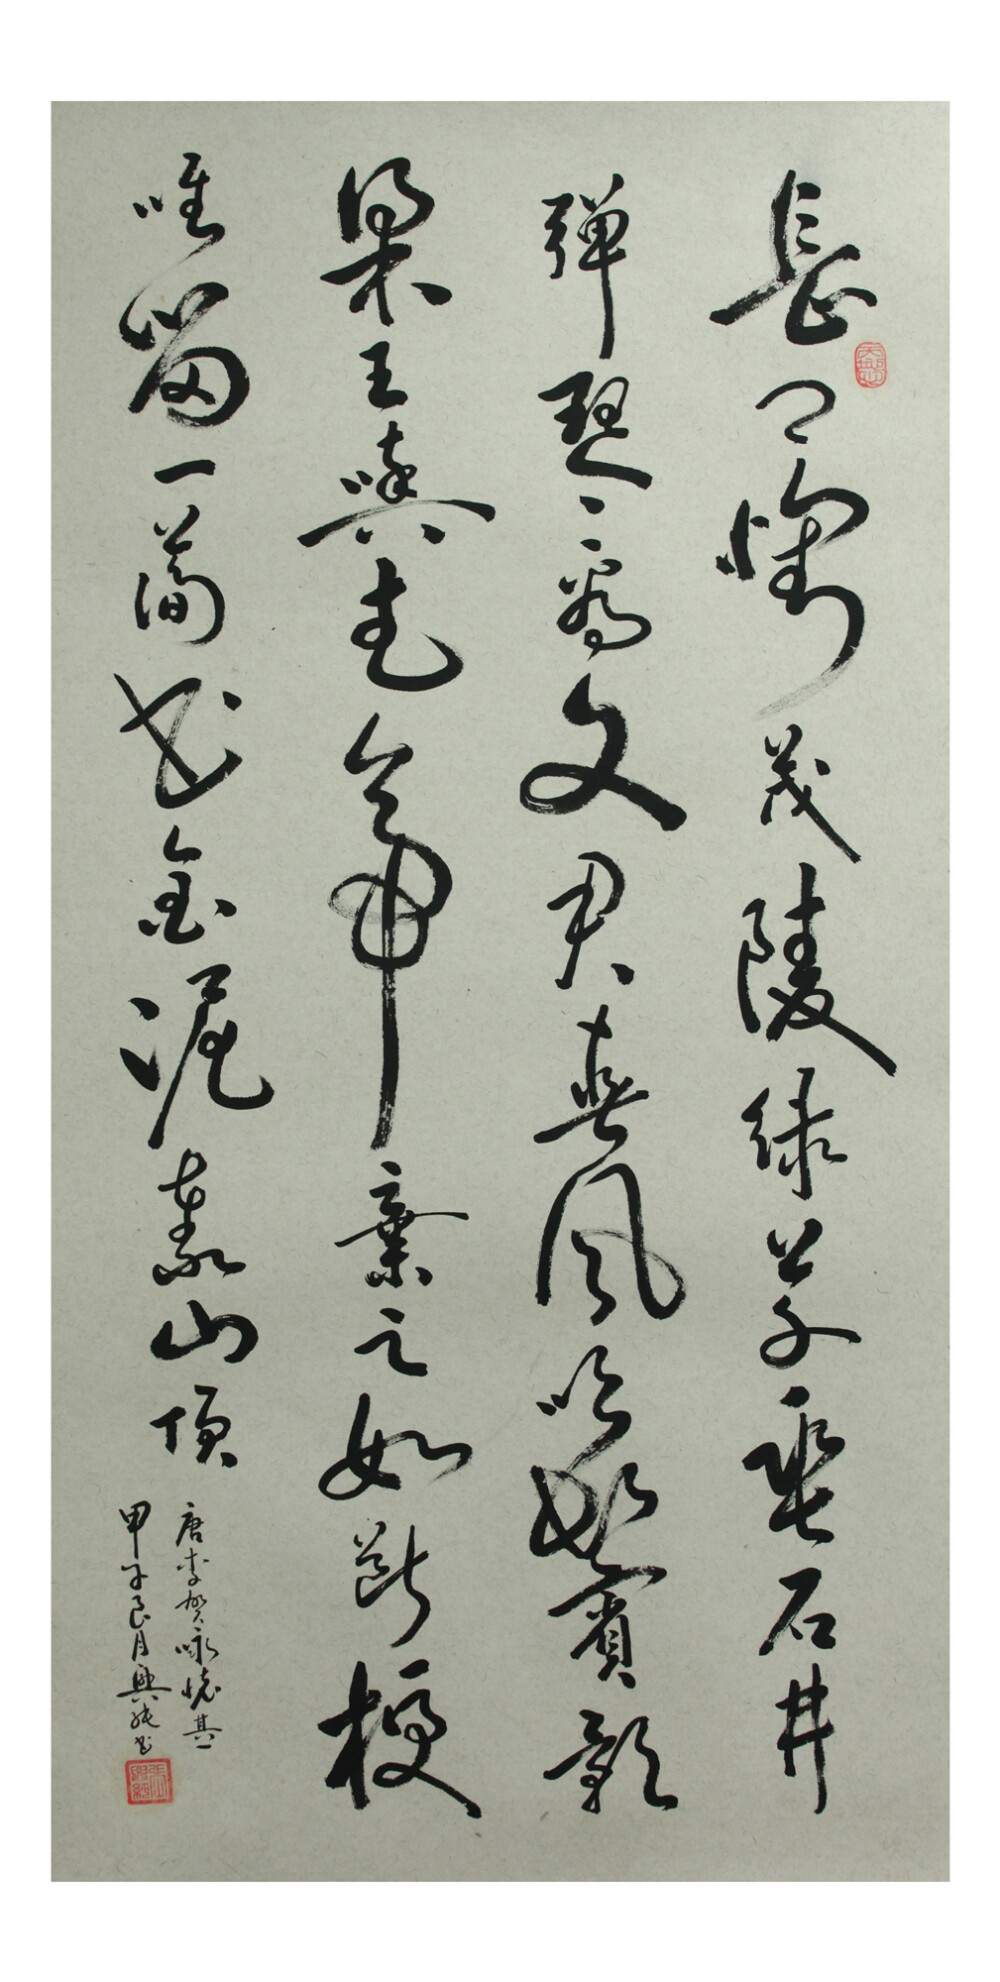 長卿懷茂陵綠草垂石井
弹琴看文君春風吹鬢影
梁王與武帝棄之如斷梗
唯留一簡書金泥泰山頂
唐李賀咏懷其一
甲午良月興書